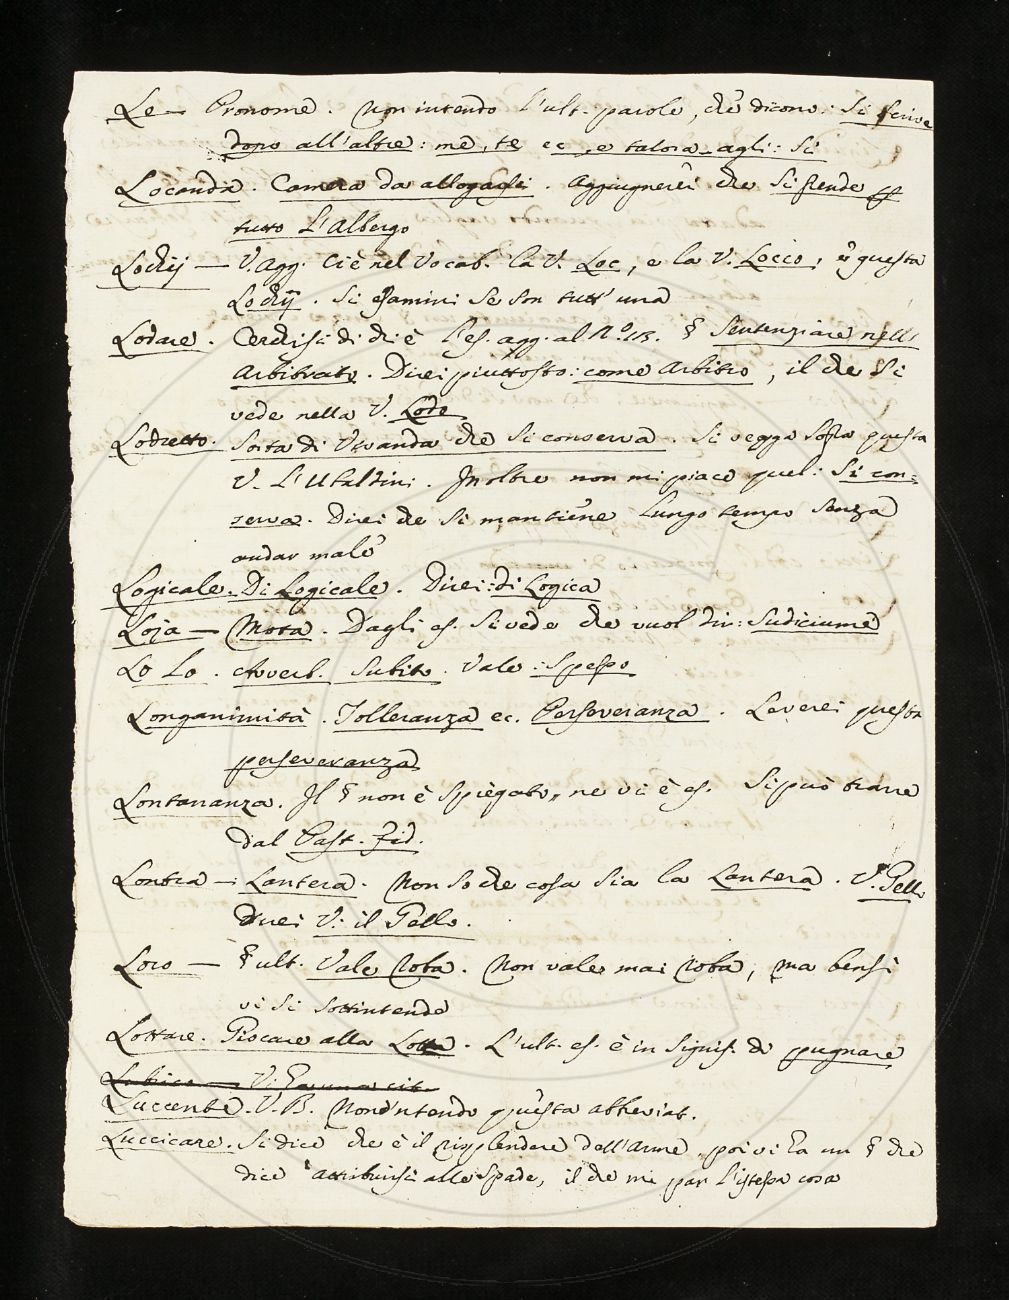 Le — Pronome. Non intendo l'ult. parole, che dicono: Si scrive
dopo all'altre: me, te ec, e talora agli: Si
Locanda. Camera da allogarsi. Aggiugnerei che si stende
tutto l'Albergo
Lochij — V. agg. Ci è nel Vocab. la V. Loc, e la V. Locco, e questa
Lochij. Si esamini se son tutt'una
Lodare. Cerchisi di chi è l'es. agg. al N.o 113. § Sentenziare nell'
Arbitrato. Direi piuttosto: come Arbitro, il che si
vede nella V. Lodo
Lodretto. Sorta di Vivanda che si conserva. Si vegga sopra questa
V. L'Ubaldini. Inoltre non mi piace quel: Si con-
serva. Direi che si mantiene lungo tempo senza
andar male
Logicale. Di Logicale. Direi: di Logica
Loja — Mota. Dagli es. si vede che vuol dir: Sudiciume
Lo Lo. Avverb. Subito. Vale: Spesso
Longanimità. Tolleranza ec. Perseveranza. Leverei questa
perseveranza
Lontananza. Il § non è spiegato, ne vi è es. Si può trarre
dal Past. Fid.
Lontra — Lantera. Non so che cosa sia la Lantera. V. Pello
direi V. il Pello.
Loro — § ult. Vale roba. Non vale mai roba, ma bensì
vi si sottintende
Lottare. Giocare alla Lotta. L'ult. es. è in signif. di pugnare
Luccente. V. B. Non intendo questa abbreviat.
Luccicare. Si dice che è il risplendere dell'Arme, poi vi ha un § che
dice attribuirsi alle Spade, il che mi par l'istessa cosa